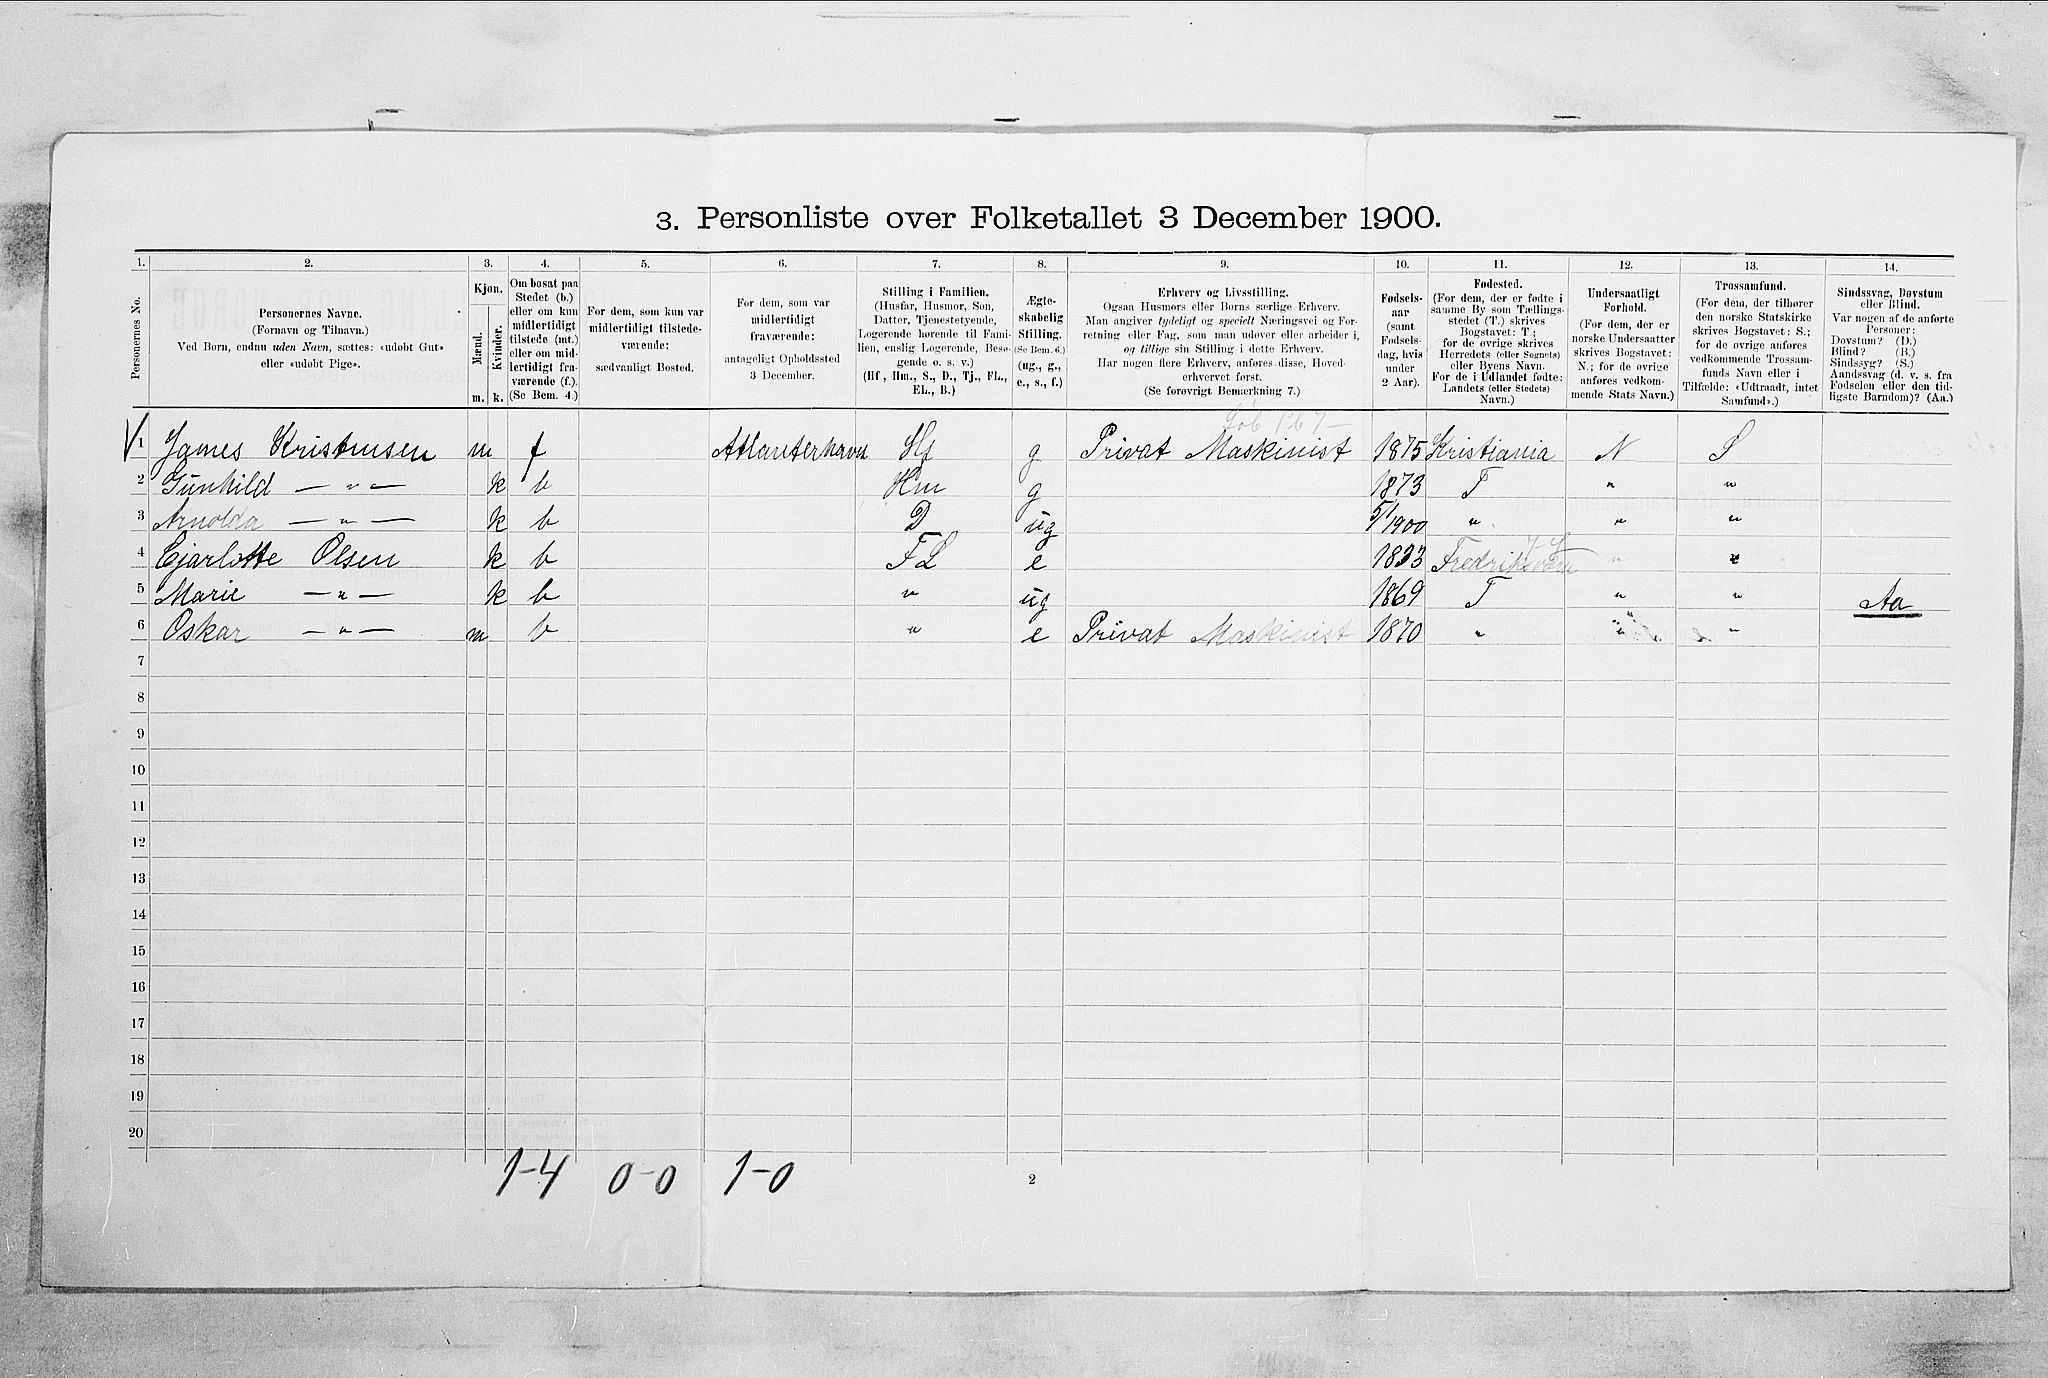 3. Personliste over Folketallet 3 December 1900.
1. 2. 3. 4. 5. 6. 7. 8. 9. 10. 11. 12. 13. 14.
Personernes No.
Personernes Navne.
(Fornavn og Tilnavn.)
Ved Børn, endnu uden Navn, sættes: «udøbt Gut»
eller «udøbt Pige».
Kjøn.
Mænd. Kvinder.
m. k.
Om bosat paa
Stedet (b.)
eller om kun
midlertidigt
tilstede (mt.)
eller om mid-
lertidigt fra-
værende (f.).
(Se Bem. 4.)
For dem, som kun var
midlertidigt tilstede-
værende:
sædvanligt Bosted.
For dem, som var
midlertidigt
fraværende:
antageligt Opholdssted
3 December.
Stilling i Familien.
(Husfar, Husmor, Søn,
Datter, Tjenestetyende,
Logerende hørende til Fami-
lien, enslig Logerende, Besø-
gende o. s. v.)
(Hf, Hm., S., D., Tj., FL.,
EL., B.)
Ægte-
skabelig
Stilling.
(Se Bem. 6.)
(ug., g.,
e., s., f.)
Erhverv og Livsstilling.
Ogsaa Husmors eller Børns særlige Erhverv.
Man angiver tydeligt og specielt Næringsvei og For-
retning eller Fag, som man udøver eller arbeider i,
og tillige sin Stilling i dette Erhverv.
Har nogen flere Erhverv, anføres disse, Hoved-
erhvervet først.
(Se forøvrigt Bemærkning 7.)
Fødsels-
aar
(samt
Fødsels-
dag, hvis
under
2 Aar).
Fødested.
(For dem, der er fødte i
samme By som Tællings-
stedet (T.) skrives
Bogstavet: T.;
for de øvrige skrives
Herredets (eller Sognets)
eller Byens Navn.
For de i Udlandet fødte:
Landets (eller Stedets)
Navn.)
Undersaatligt
Forhold.
(For dem, der er
norske Undersaatter
skrives Bogstavet:
N.; for de øvrige
anføres vedkom-
mende Stats Navn.)
Trossamfund.
(For dem, der tilhører
den norske Statskirke
skrives Bogstavet: S.;
for de øvrige anføres
vedkommende Trossam-
funds Navn eller i
Tilfælde: «Udtraadt, intet
Samfund».)
Sindssvag, Døvstum
eller Blind.
Var nogen af de anførte
Personer:
Døvstum? (D.)
Blind? (B.)
Sindssyg? (S.)
Aandssvag (d. v. s. fra
Fødselen eller den tid-
ligste Barndom)? (Aa.)
1 James Kristensen m f Atlanterhavet Hf g Privat Maskinist 1875 Kristiania N S
2 Gunhild — „ — k b Hm g 1873 T „ „
3 Arnolda — „ — k b D ug 5/1900 „ „ „
4 Cjarlotte Olsen k b FL e 1833 Fredriksværn „ „
5 Marie — „ — k b „ ug 1869 T „ „ Aa
6 Oskar — „ — m b „ e Privat Maskinist 1870 „ „ „
7
8
9
10
11
12
13
14
15
16
17
18
19
20
1-4 0-0 1-0
2